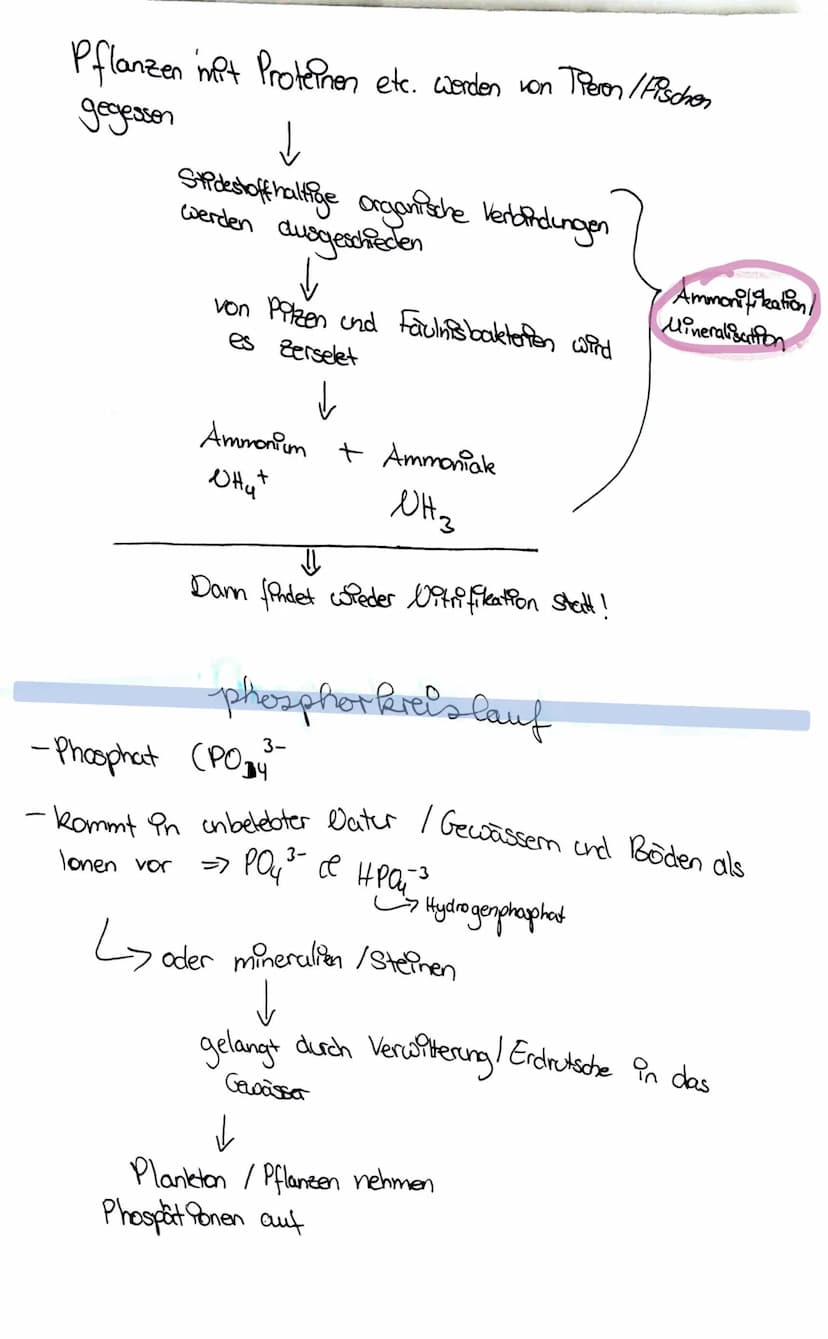 Pflanzen mit Proteinen etc. werden von Tieren/Fischen
gegessen
↓
Stidestoffhaltige organische Verbindungen
werden ausgeschieden
↓
von Pilzen und Fäulnisbakterien wird
es zersetzt
↓
Ammonifikation/
Mineralisation
Ammonium + Ammoniak
NH₄⁺ NH₃
⇓
Dann findet wieder Nitrifikation statt!
phosphorkreislauf
- Phosphat (PO₄³⁻
- kommt in unbelebter Natur / Gewässern und Böden als
Ionen vor => PO₄³⁻ & HPO₄⁻³
↳ Hydrogenphosphat
↳ oder mineralien / Steinen
↓
gelangt durch Verwitterung/Erdrutsche in das
Gewässer
↓
Plankton / Pflanzen nehmen
Phospat ionen auf